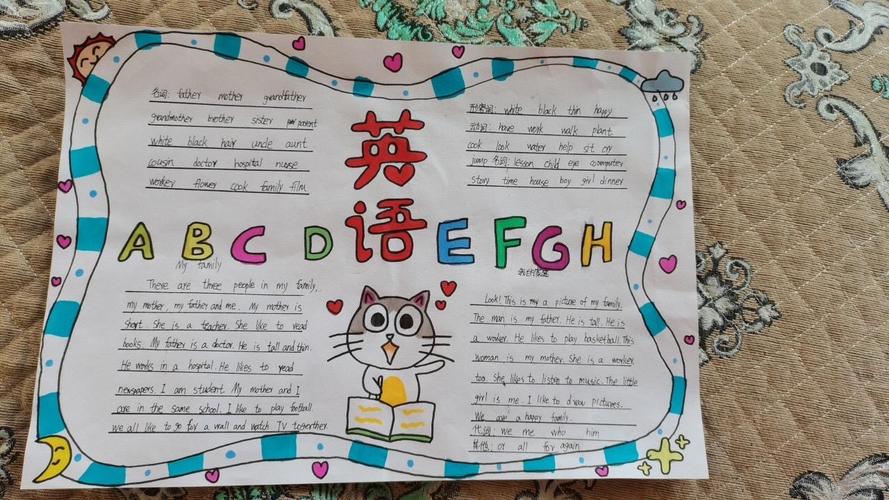 名词: father mother grandfather
grandmother brother sister parent
white black hair uncle aunt
cousin doctor hospital nurse
worker flower cook family film
英语
形容词: white black thin happy
动词: have work walk plant
cook look water help sit cry
jump 名词: lesson child eye computer
story time house boy girl dinner
A B C D E F G H
My family
There are three people in my family,
my mother, my father and me. My mother is
short. She is a teacher. She like to read
books. My father is a doctor. He is tall and thin.
He works in a hospital. He likes to read
newspapers. I am student. My mother and I
are in the same school. I like to play football.
We all like to go for a wall and watch TV togerther.
我的家庭
Look! This is my a picture of my family.
The man is my father. He is tall. He is
a worker. He likes to play basketball. This
woman is my mother. She is a worker
too. She likes to listen to music. The little
girl is me. I like to draw pictures.
We are a happy family.
代词: we me who him
其他: at all for again